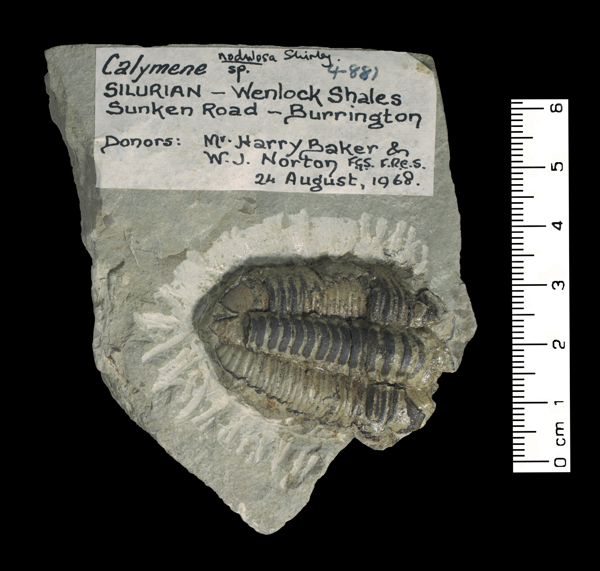 Calymene nodulosa Shirley.
sp. 4-881
SILURIAN – Wenlock Shales
Sunken Road – Burrington
Donors: Mr. Harry Baker &
W. J. Norton F.G.S. F.R.E.S.
24 August, 1968.
6
5
4
3
2
1
0 cm